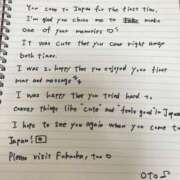 You come to Japan for the first time.
I'm glad you chose me to make
one of your memories
It was cute that you came right away
both times.
I was so happy that you enjoyed your first
and message
I was happy that you tried hard to
convey things like "cute" and "feels good" in Japan
I hope to see you again when you come to
Japan!
Please visit Fukuoka, too
OTO